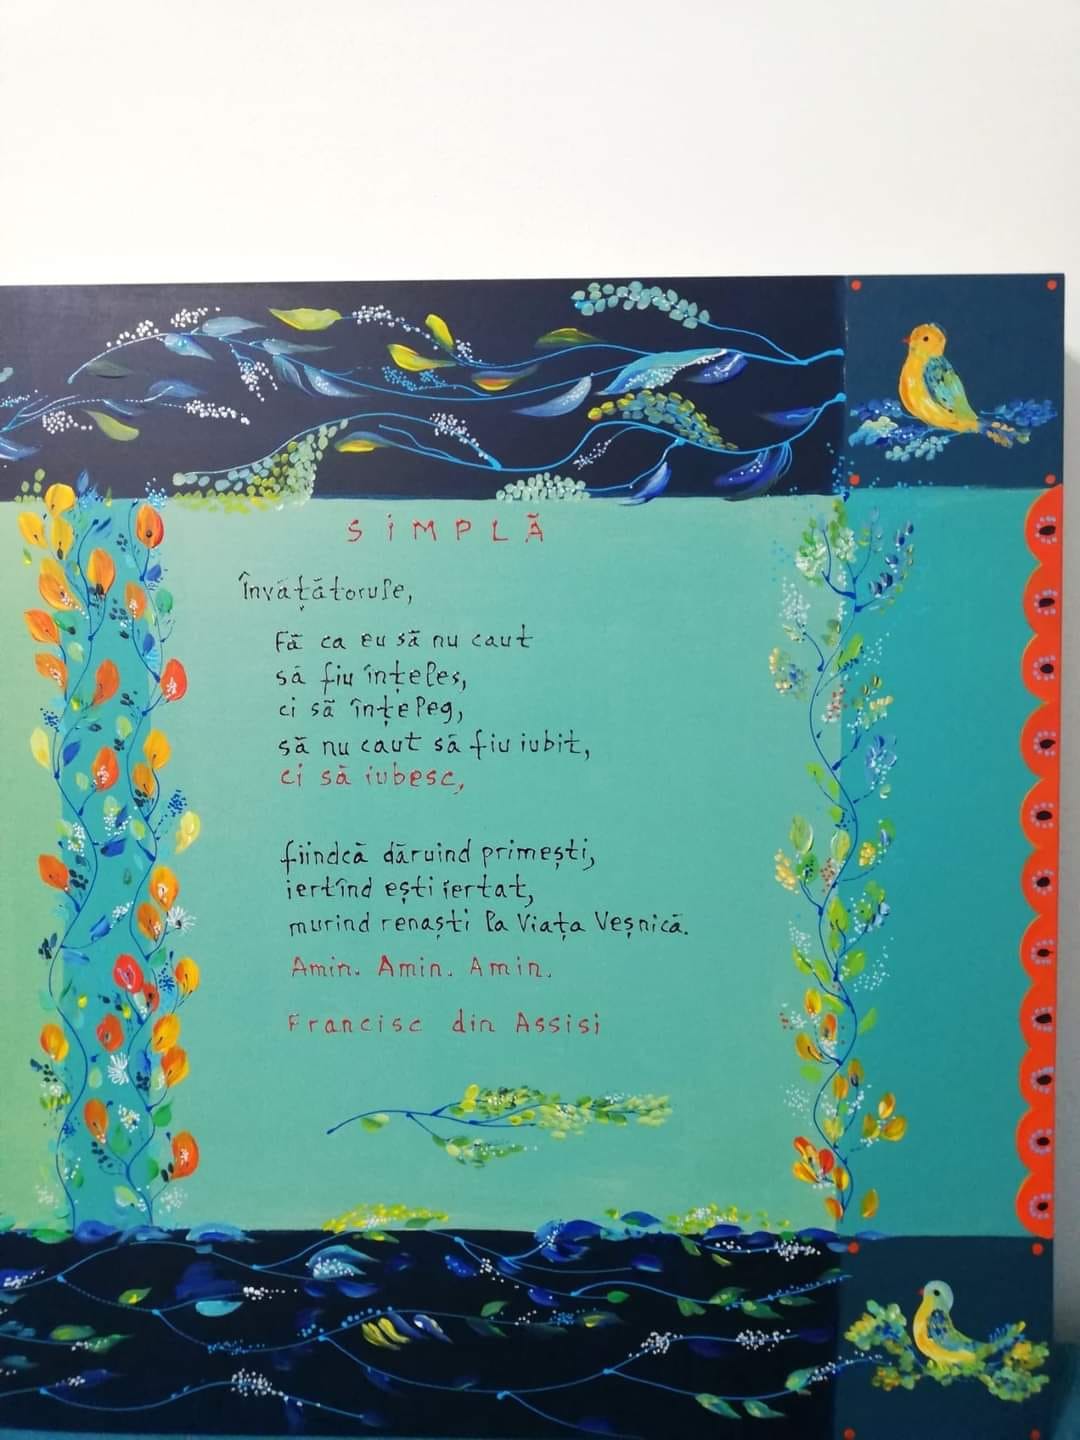 SIMPLĂ
Învățătorule,
Fă ca eu să nu caut
să fiu înțeles,
ci să înțeleg,
să nu caut să fiu iubit,
ci să iubesc,
fiindcă dăruind primești,
iertînd ești iertat,
murind renaști la Viața Veșnică.
Amin. Amin. Amin.
Francisc din Assisi